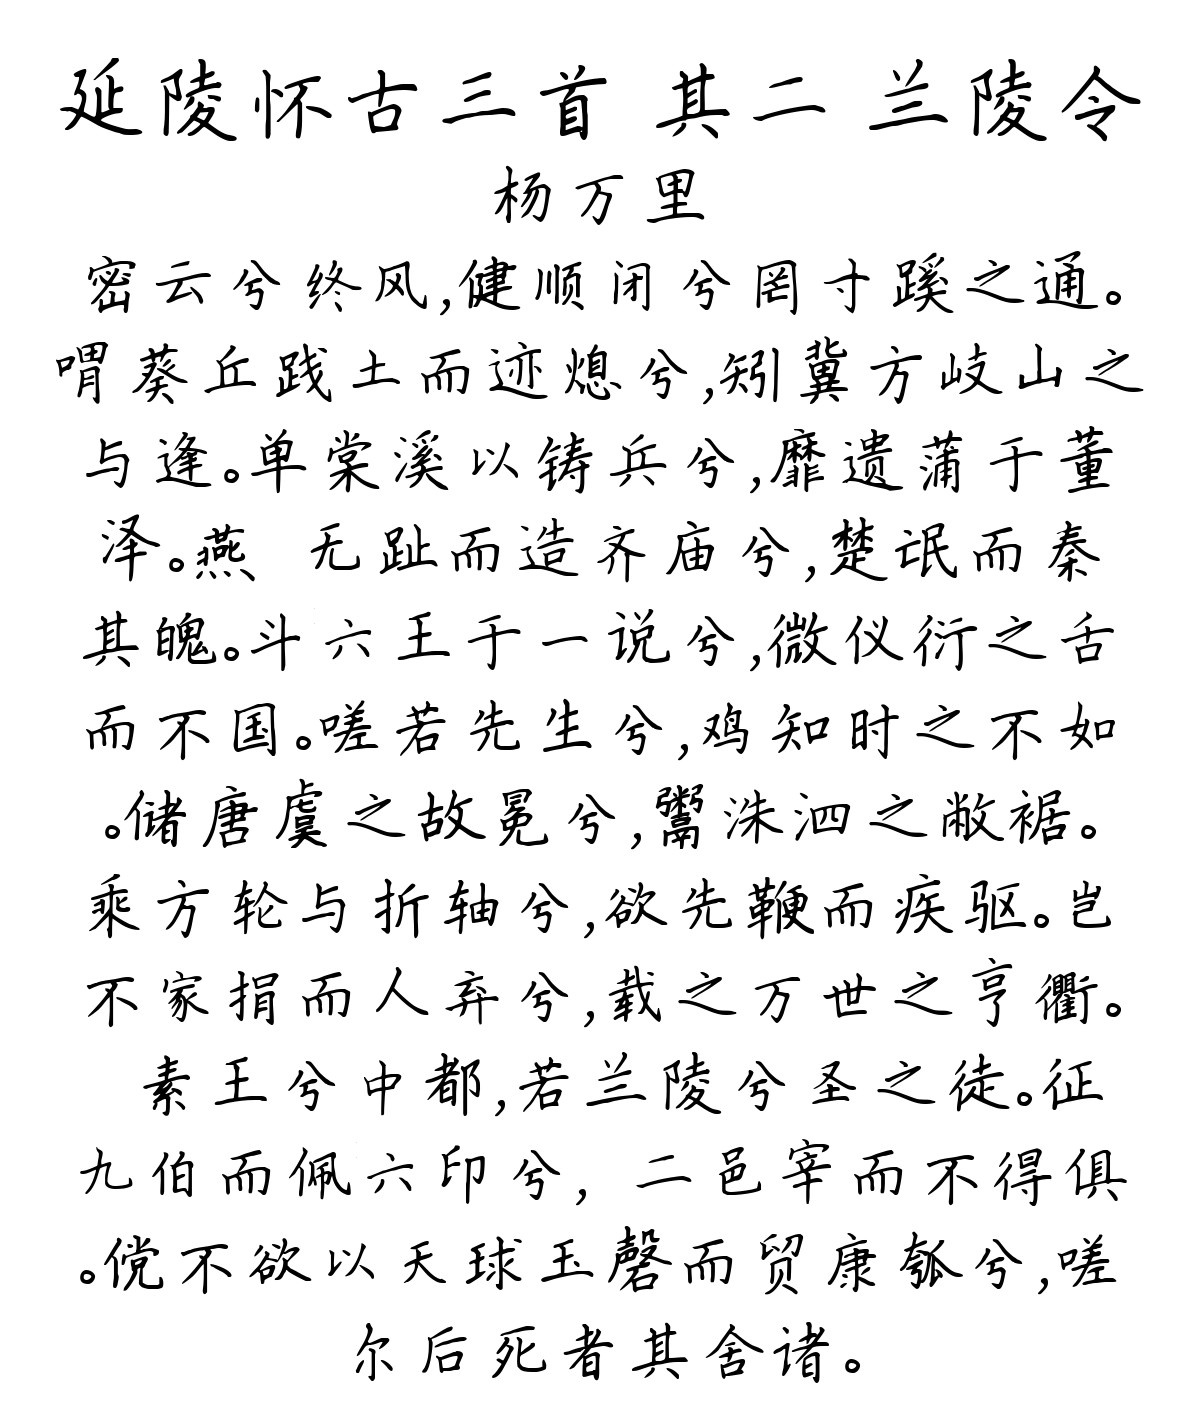 延陵怀古三首 其二 兰陵令
杨万里
密云兮终风,健顺闭兮罔寸蹊之通。
喟葵丘践土而迹熄兮,矧冀方岐山之
与逢。单棠溪以铸兵兮,靡遗蒲于董
泽。燕 无趾而造齐庙兮,楚氓而秦
其魄。斗六王于一说兮,微仪衍之舌
而不国。嗟若先生兮,鸡知时之不如
。储唐虞之故冕兮,鬻洙泗之敝裾。
乘方轮与折轴兮,欲先鞭而疾驱。岂
不家捐而人弃兮,载之万世之亨衢。
素王兮中都,若兰陵兮圣之徒。征
九伯而佩六印兮，二邑宰而不得俱
。傥不欲以天球玉磬而贸康瓠兮,嗟
尔后死者其舍诸。